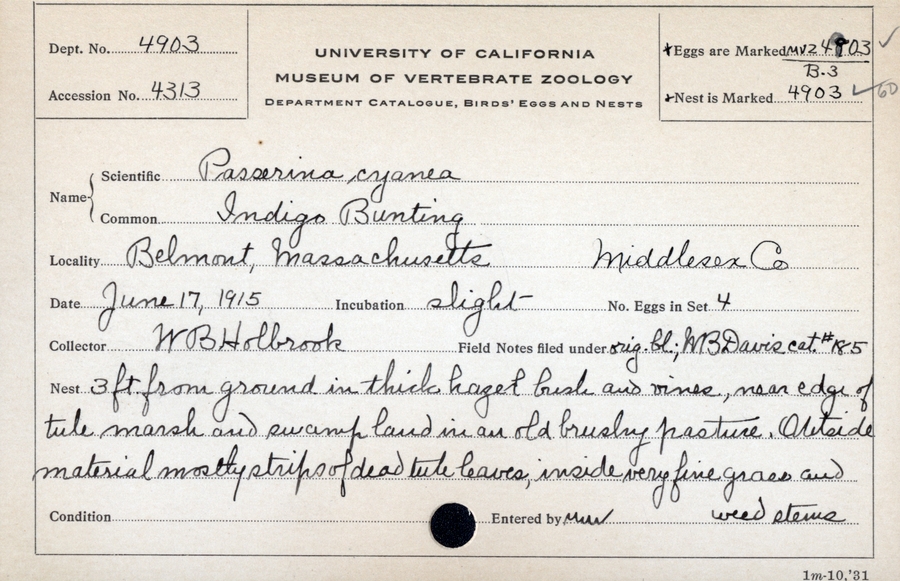 Dept. No. 4903
Accession No. 4313
UNIVERSITY OF CALIFORNIA
MUSEUM OF VERTEBRATE ZOOLOGY
DEPARTMENT CATALOGUE, BIRDS' EGGS AND NESTS
Eggs are Marked MVZ 4903
B.3
Nest is Marked 4903 60
Name
Scientific Passerina cyanea
Common Indigo Bunting
Locality Belmont, Massachusetts Middlesex Co
Date June 17, 1915 Incubation slight No. Eggs in Set 4
Collector W B Holbrook Field Notes filed under orig. bl; WB Davis cat. #185
Nest 3 ft from ground in thick hazel bush and vines, near edge of
tule marsh and swamp land in an old brushy pasture. Outside
material mostly strips of dead tule leaves, inside very fine grass and
weed stems
Condition Entered by
1m-10,'31